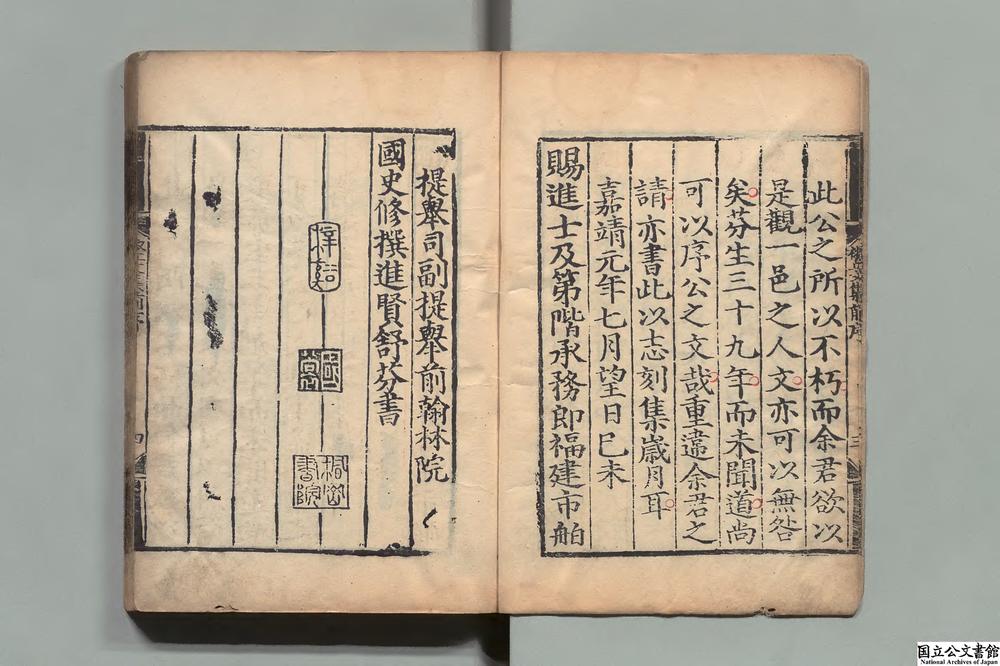 此公之所以不朽而余君欲以
是觀一邑之人文亦可以無咎
矣芬生三十九年而未聞道尚
可以序公之文哉重違余君之
請亦書此以志刻集歲月耳
嘉靖元年七月望日己未
賜進士及第階承務郎福建市舶
三
提舉司副提舉前翰林院
國史修撰進賢舒芬書
梓溪
國裳
桐岩書院
四
国立公文書館
National Archives of Japan